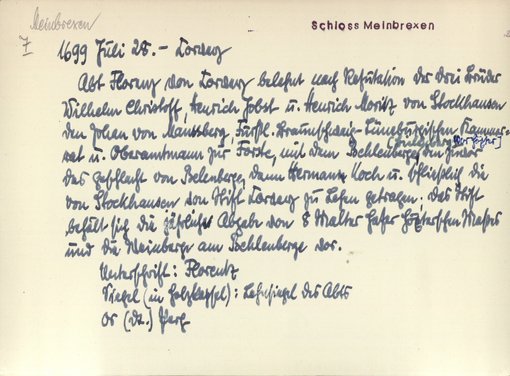 Meinbrexen
7
Schloss Meinbrexen
1699 Juli 28. - Corvey
Abt Florenz von Corvey belehnt nach Refutation der drei Brüder
Wilhelm Christoff, Henrich Jobst u. Henrich Moritz von Stockhausen
den Johan von Mansberg, Fürstl. Braunschweig-Lüneburgischen Kammer-
rat u. Oberamtmann zur Forste, mit dem Bechlenberge, den zuvor
das Geschlecht von Belenberg, dann Hermann Koch u. schließlich die
von Stockhausen vom Stift Corvey zu Lehen getragen. Das Stift
behält sich die jährliche Abgabe von 8 Malter Hafer Höxterschen Maßes
und die Weinberge am Bechlenberge vor.
Unterschrift: Florentz
Siegel (in Holzkapsel): Lehnsiegel des Abts
Or (dt.) Perg